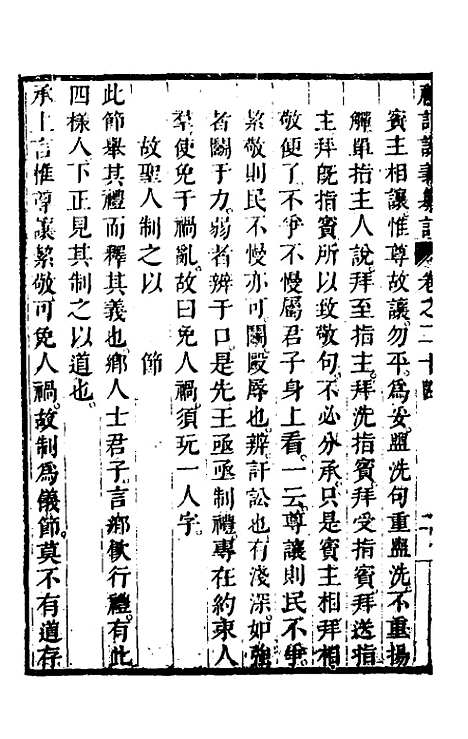 禮記說義纂訂 卷之二十四
賓主相讓惟尊故讓勿平為妥盥洗句重盥洗不重揚
觶單指主人說拜至指主拜洗指賓拜受指賓拜送指
主拜旣指賓所以致敬句不必分承只是賓主相拜相
敬便了不爭不慢屬君子身上看一云尊讓則民不爭
潔敬則民不慢亦可鬭毆辱也辨訐訟也有淺深如強
者鬭于力弱者辨于口是先王亟亟制禮專在約束人
羣使免于禍亂故曰免人禍須玩一人字
故聖人制之以 節
此節舉其禮而釋其義也鄉人士君子言鄉飲行禮有此
四樣人下正見其制之以道也
承上言惟尊讓潔敬可免人禍故制為儀節莫不有道存